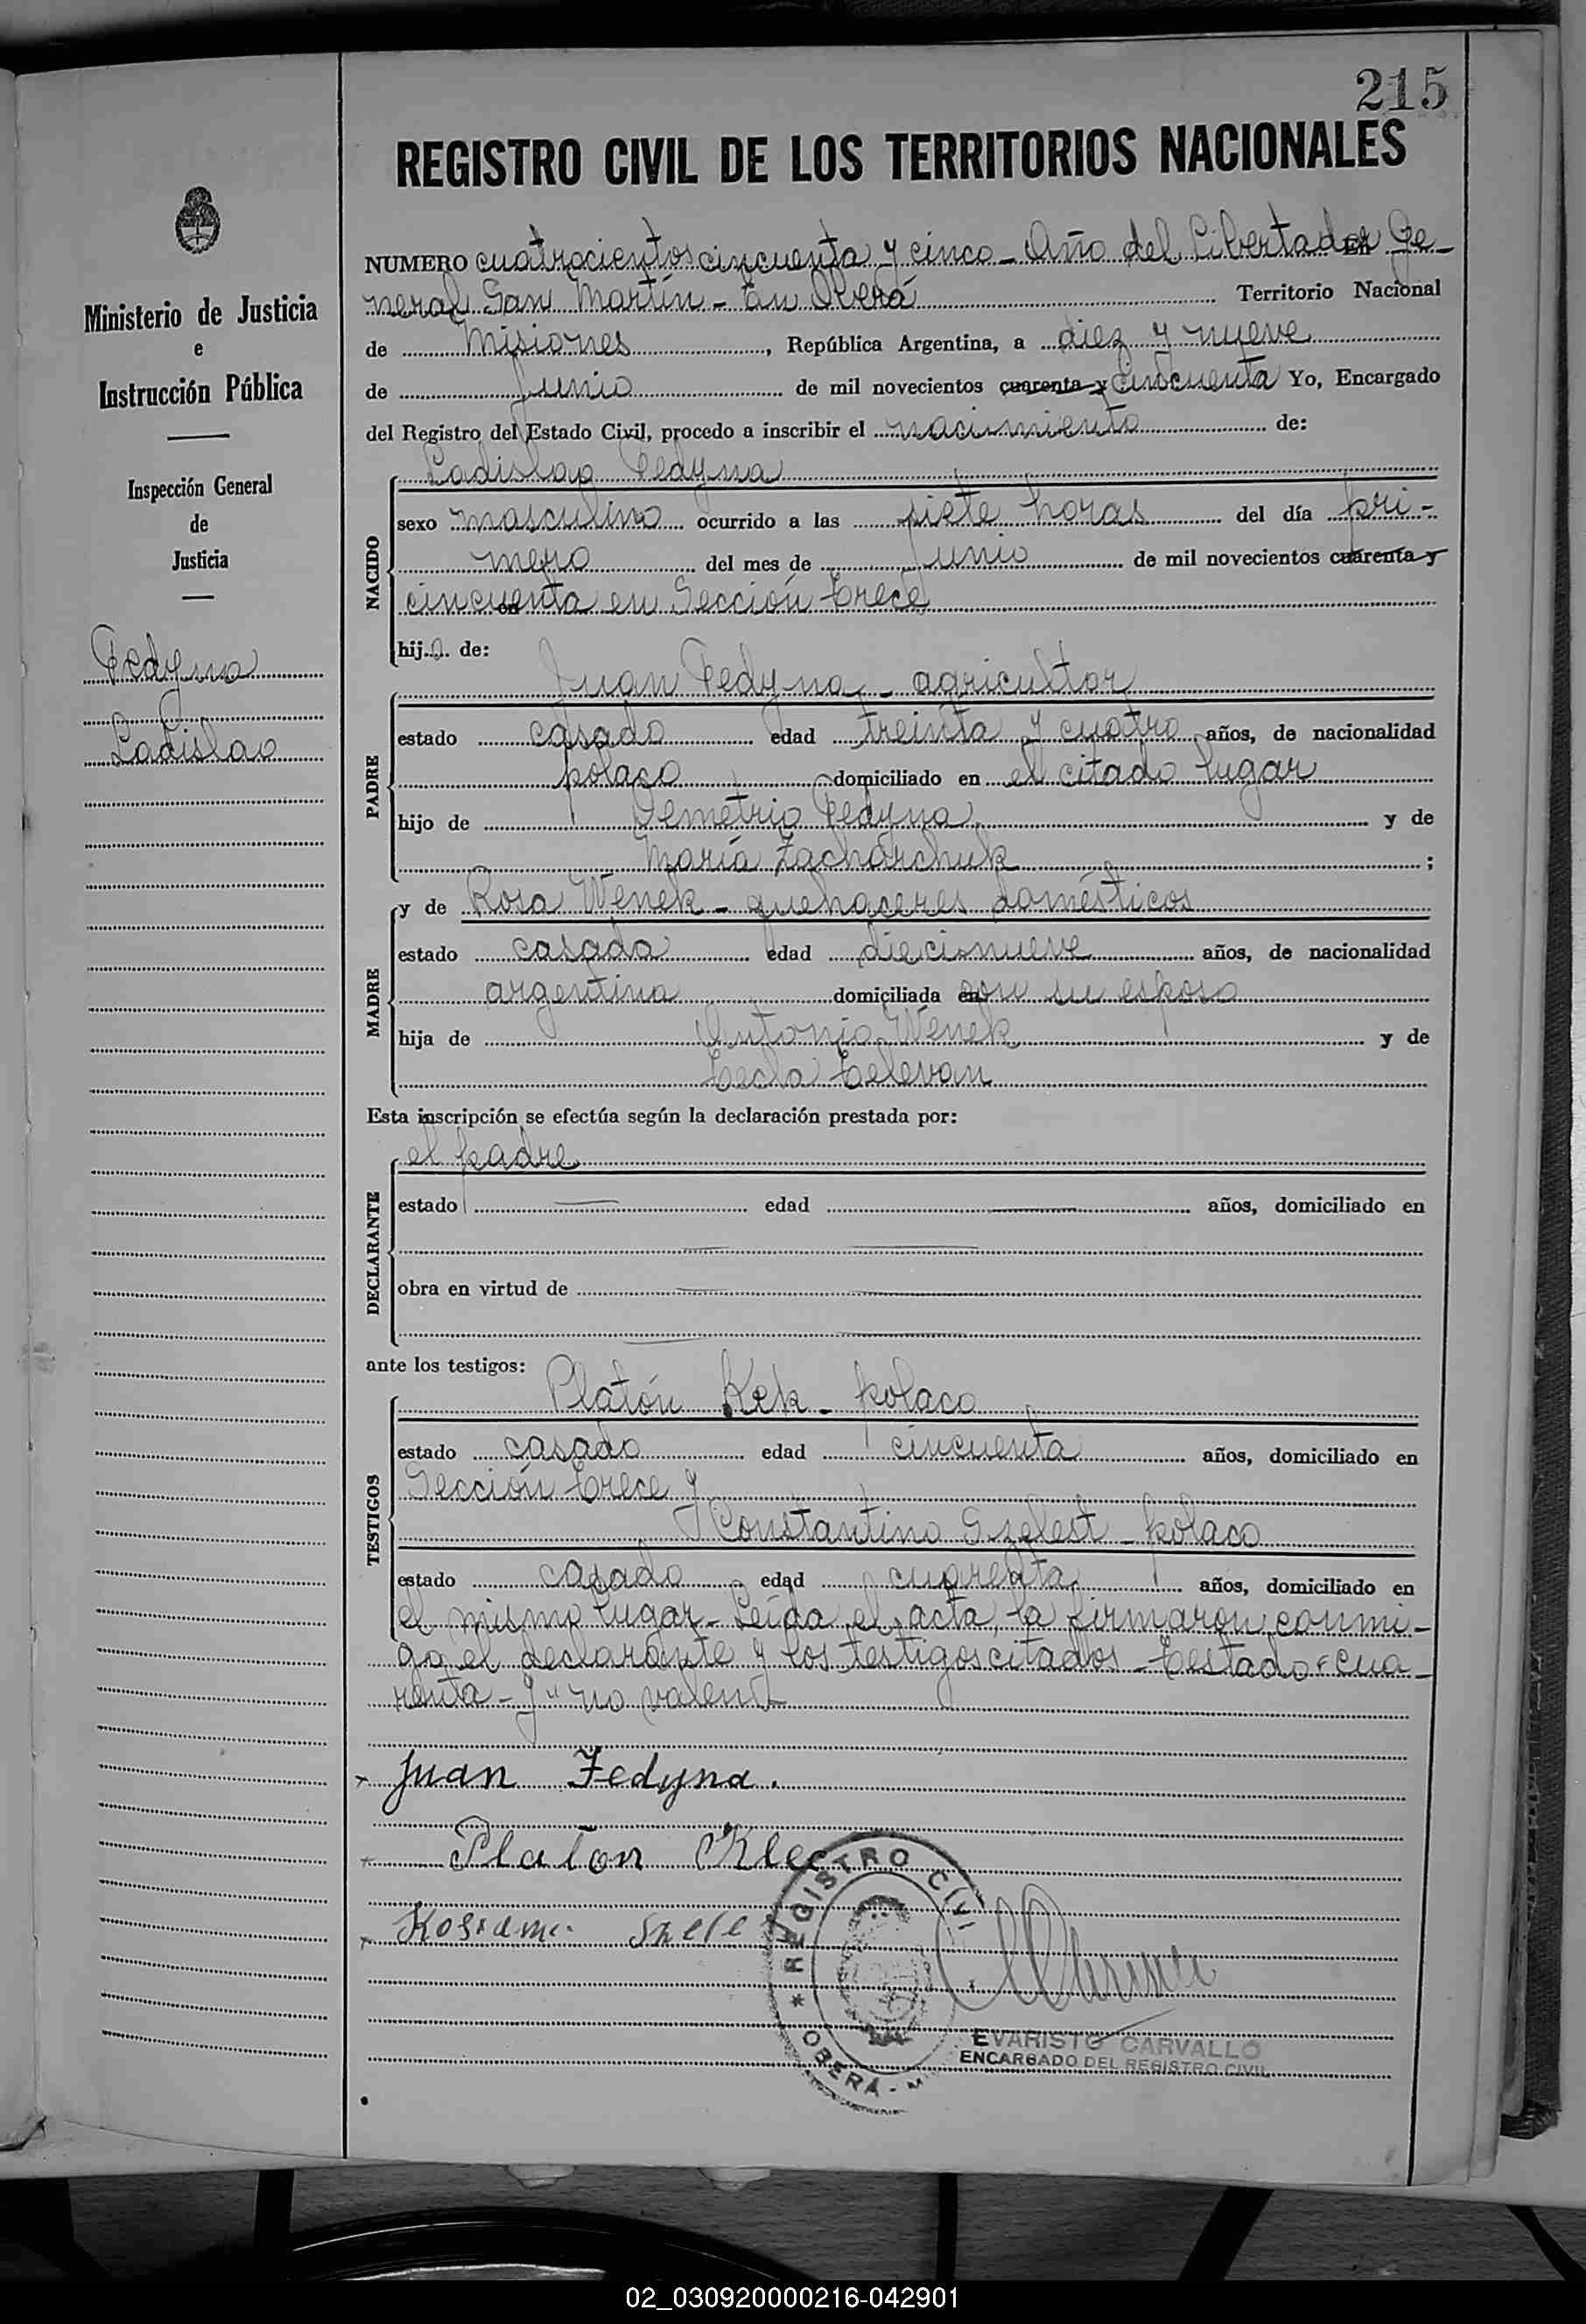 215
REGISTRO CIVIL DE LOS TERRITORIOS NACIONALES
Ministerio de Justicia
e
Instrucción Pública
Inspección General
de
Justicia
Fedyna
Ladislao
NUMERO cuatrocientos cincuenta y cinco - Año del Libertador Ge-
neral San Martín - En Oberá Territorio Nacional
de Misiones, República Argentina, a diez y nueve
de Junio de mil novecientos cuarenta y cincuenta Yo, Encargado
del Registro del Estado Civil, procedo a inscribir el nacimiento de:
Ladislao Fedyna
NACIDO
sexo masculino ocurrido a las siete horas del día pri-
mero del mes de Junio de mil novecientos cuarenta y
cincuenta en Sección Trece
hijo de:
Juan Fedyna - agricultor
PADRE
estado casado edad treinta y cuatro años, de nacionalidad
polaco domiciliado en el citado lugar
hijo de Demetrio Fedyna y de
María Zacharchuk ;
y de Rosa Wenek - quehaceres domésticos
MADRE
estado casada edad diecinueve años, de nacionalidad
argentina domiciliada con su esposo
hija de Antonio Wenek y de
Tecla Televan
Esta inscripción se efectúa según la declaración prestada por:
el padre
DECLARANTE
estado edad años, domiciliado en
obra en virtud de
ante los testigos:
Platón Kek - polaco
TESTIGOS
estado casado edad cincuenta años, domiciliado en
Sección Trece y
Constantino Szelest - polaco
estado casado edad cuarenta años, domiciliado en
el mismo lugar - Leída el acta, la firmaron conmi-
go el declarante y los testigos citados - Testado "cua-
renta - y" no valen
Juan Fedyna.
Platon
REGISTRO CIVIL
OBERÁ - M
EVARISTO CARVALLO
ENCARGADO DEL REGISTRO CIVIL
02_030920000216-042901